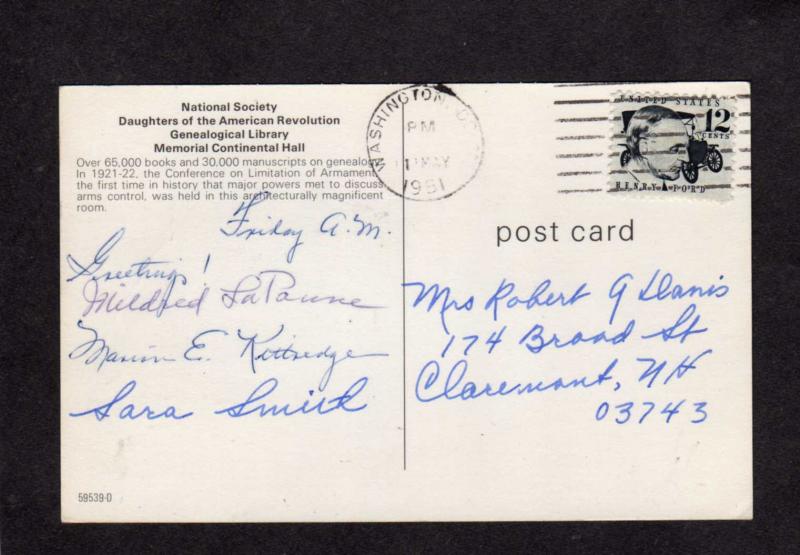 National Society
Daughters of the American Revolution
Genealogical Library
Memorial Continental Hall
Over 65,000 books and 30,000 manuscripts on genealogy.
In 1921-22, the Conference on Limitation of Armament,
the first time in history that major powers met to discuss
arms control, was held in this architecturally magnificent
room.
Friday A.M.
Greetings!
Mildred
Marion E. Kittredge
Sara Smith
59539-D
WASHINGTON, DC
PM
MAY
1981
UNITED STATES
12
CENTS
HENRY FORD
post card
Mrs Robert G Davis
174 Broad St
Claremont, NH
03743